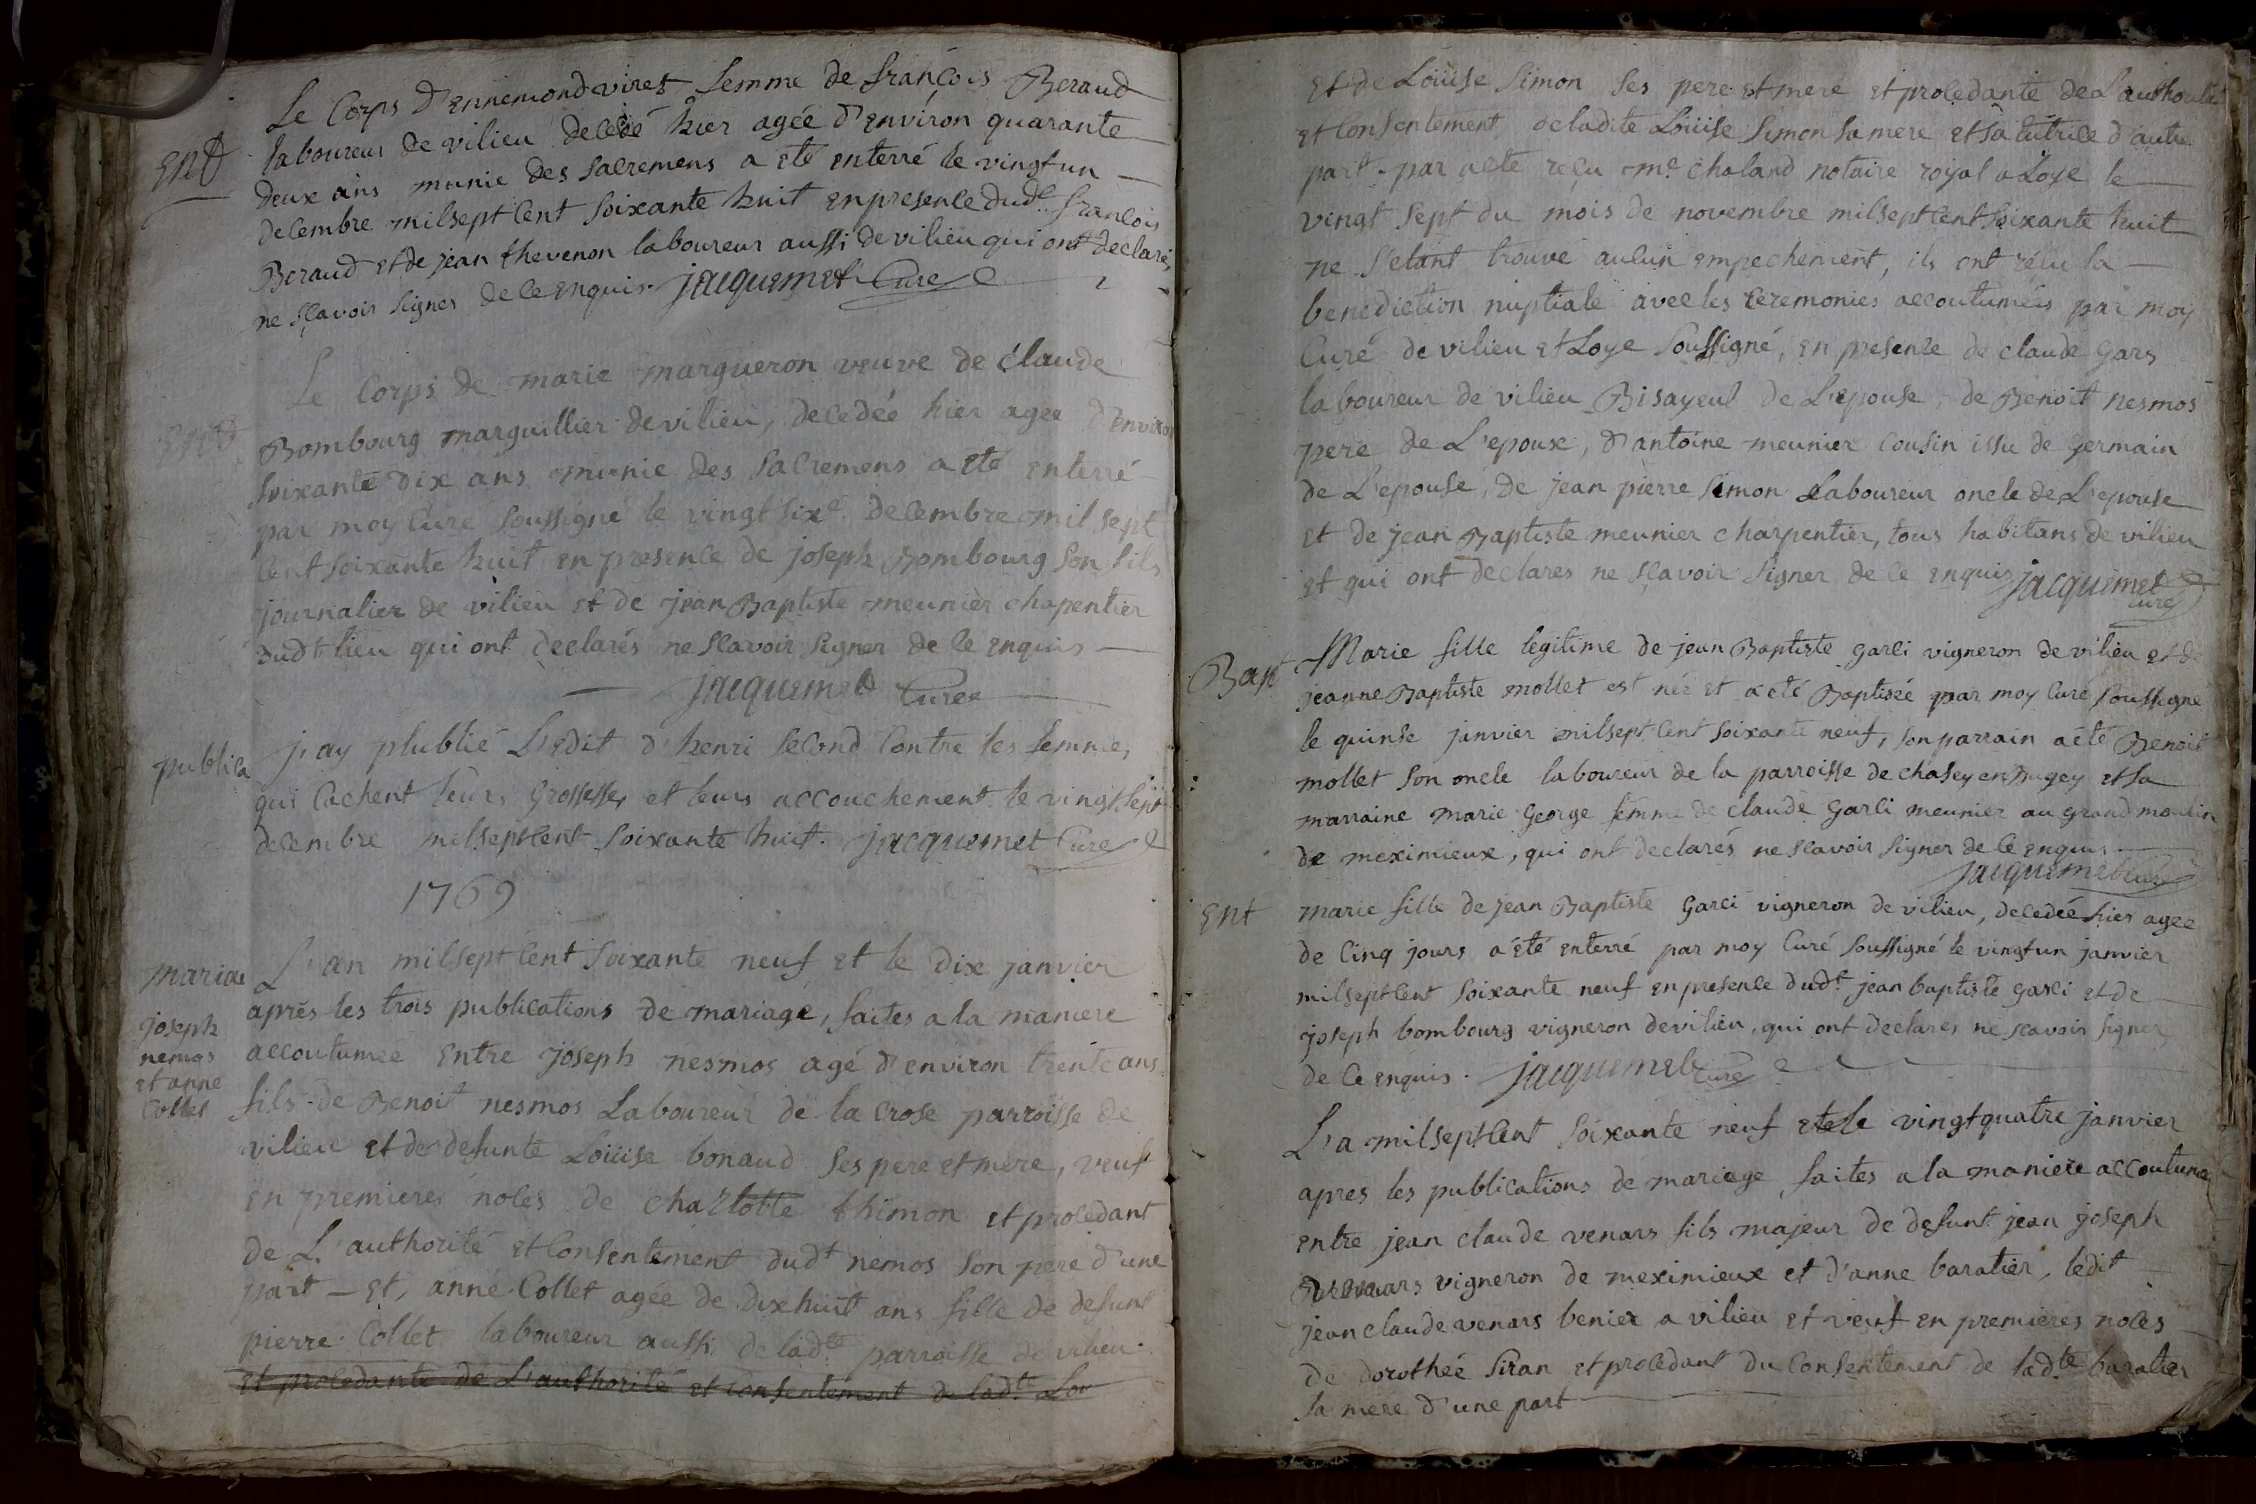 Le Corps d'ennemond viret femme de françois Beraud
Ent
laboureur de vilieu decedé hier agée d'environ quarante
deux ans munie des sacremens a eté enterré le vingt un
decembre milsept cent soixante huit en presence dudt françois
Beraud et de jean thevenon laboureur aussi de vilieu qui ont declaré
ne sçavoir signer de ce enquis. jacquemet Curé
Le Corps de marie margueron veuve de claude
Ent
Bombourg marguillier de vilieu, decedée hier agee d'environ
soixante dix ans munie des sacremens a eté enterré
par moy Curé soussigné le vingt sixe decembre mil sept
Cent soixante huit en presence de joseph Bombourg son fils
journalier de vilieu et de jean Baptiste meunier chapentier
dudt lieu qui ont declarés ne scavoir signer de ce enquis
jacquemet Curé
publica
j'ay plublié L'edit d'henri second Contre les femmes
qui Cachent leurs grossesses et leurs accouchement le vingt sept
decembre milsept cent soixante huit. jacquemet Curé
1769
mariae
L'an milsept cent soixante neuf et le dix janvier
après les trois publications de mariage, faites a la maniere
joseph
nemos
et anne
Collet
accoutumée entre joseph nesmos agé d'environ trente ans
fils de Benoit nesmos Laboureur de la Crose parroisse de
vilieu et de defunte Loüise bonaud ses pere et mere, veuf
en premieres noces de charlotte thimon et procedant
de L'authorité et Consentement dudt nemos son pere d'une
part – et, anne Collet agée de dix huit ans fille de defunt
pierre Collet laboureur aussi de ladte parroisse de vilieu
et procedante de L'authorité et consentement de ladte Lou
et de Loüise Simon ses pere et mere et procedante de L'authorité
et Consentement de ladite Loüise Simon sa mere et sa tutrice d'autre
part. par acte reçu me Chaland notaire royal a Loye le
vingt sept du mois de novembre milsept cent soixante huit
ne s'etant trouvé aucun empechement, ils ont réçu la
benediction nuptiale avec les Ceremonies accoutumées par moy
Curé de vilieu et Loye soussigné, en presence de claude gars
laboureur de vilieu Bisayeul de L'epouse, de Benoit nesmos
pere de L'epoux, d'antoine meunier Cousin issu de germain
de L'epouse, de jean pierre Simon Laboureur oncle de L'epouse
et de jean Baptiste meunier charpentier, tous habitans de vilieu
et qui ont declares ne sçavoir signer de ce enquis jacquemet
Curé
Bapt
Marie fille legitime de jean Baptiste garci vigneron de vilieu et de
jeanne Baptiste mollet est née et a eté Baptisée par moy Curé soussigné
le quinse janvier milsept cent soixante neuf, son parrain a été Benoit
mollet son oncle laboureur de la parroisse de chasey en Bugey et sa
marraine marie george femme de claude garci meunier au grand moulin
de meximieux, qui ont declarés ne scavoir signer de ce enquis
jacquemet Curé
Ent
marie fille de jean Baptiste garci vigneron de vilieu, decedée hier agee
de Cinq jours a été enterré par moy Curé soussigné le vingt un janvier
milsept cent soixante neuf en presence dudt jean baptiste garci et de
joseph bombourg vigneron de vilieu, qui ont declares ne scavoir signer
de ce enquis. jacquemet Curé
L'a milsept cent soixante neuf et le vingt quatre janvier
apres les publications de mariage faites a la maniere accoutumée
entre jean claude venars fils majeur de defunt jean joseph
venars vigneron de meximieux et d'anne baratier, ledit
jean claude venars benier a vilieu et veuf en premieres noces
de dorothée siran et procedant du Consentement de ladte baratier
sa mere d'une part